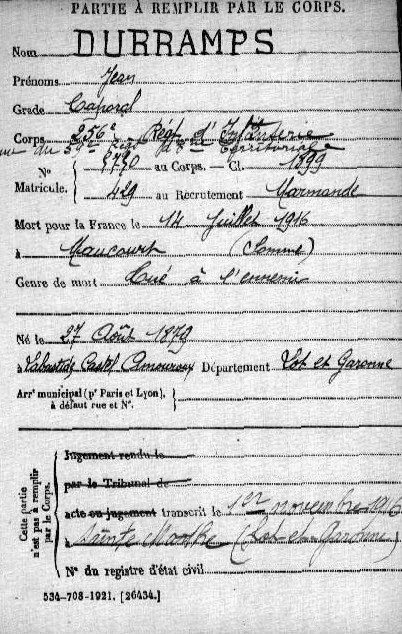 PARTIE À REMPLIR PAR LE CORPS.
Nom DURRAMPS
Prénoms Jean
Grade Caporal
Corps 256e Régt d'Infanterie
du Territorial
N° 8770 au Corps. — Cl. 1899
Matricule. 429 au Recrutement Marmande
Mort pour la France le 14 Juillet 1916
à Maucourt (Somme)
Genre de mort Tué à l'ennemi
Né le 27 Août 1879
à Labastide Castel Amouroux Département Lot et Garonne
Arrt municipal (pr Paris et Lyon),
à défaut rue et N°.
Cette partie n'est pas à remplir par le Corps.
Jugement rendu le
par le Tribunal de
acte ou jugement transcrit le 1er novembre 1916
à Sainte Marthe (Lot et Garonne)
N° du registre d'état civil
534-708-1921. [26434.]